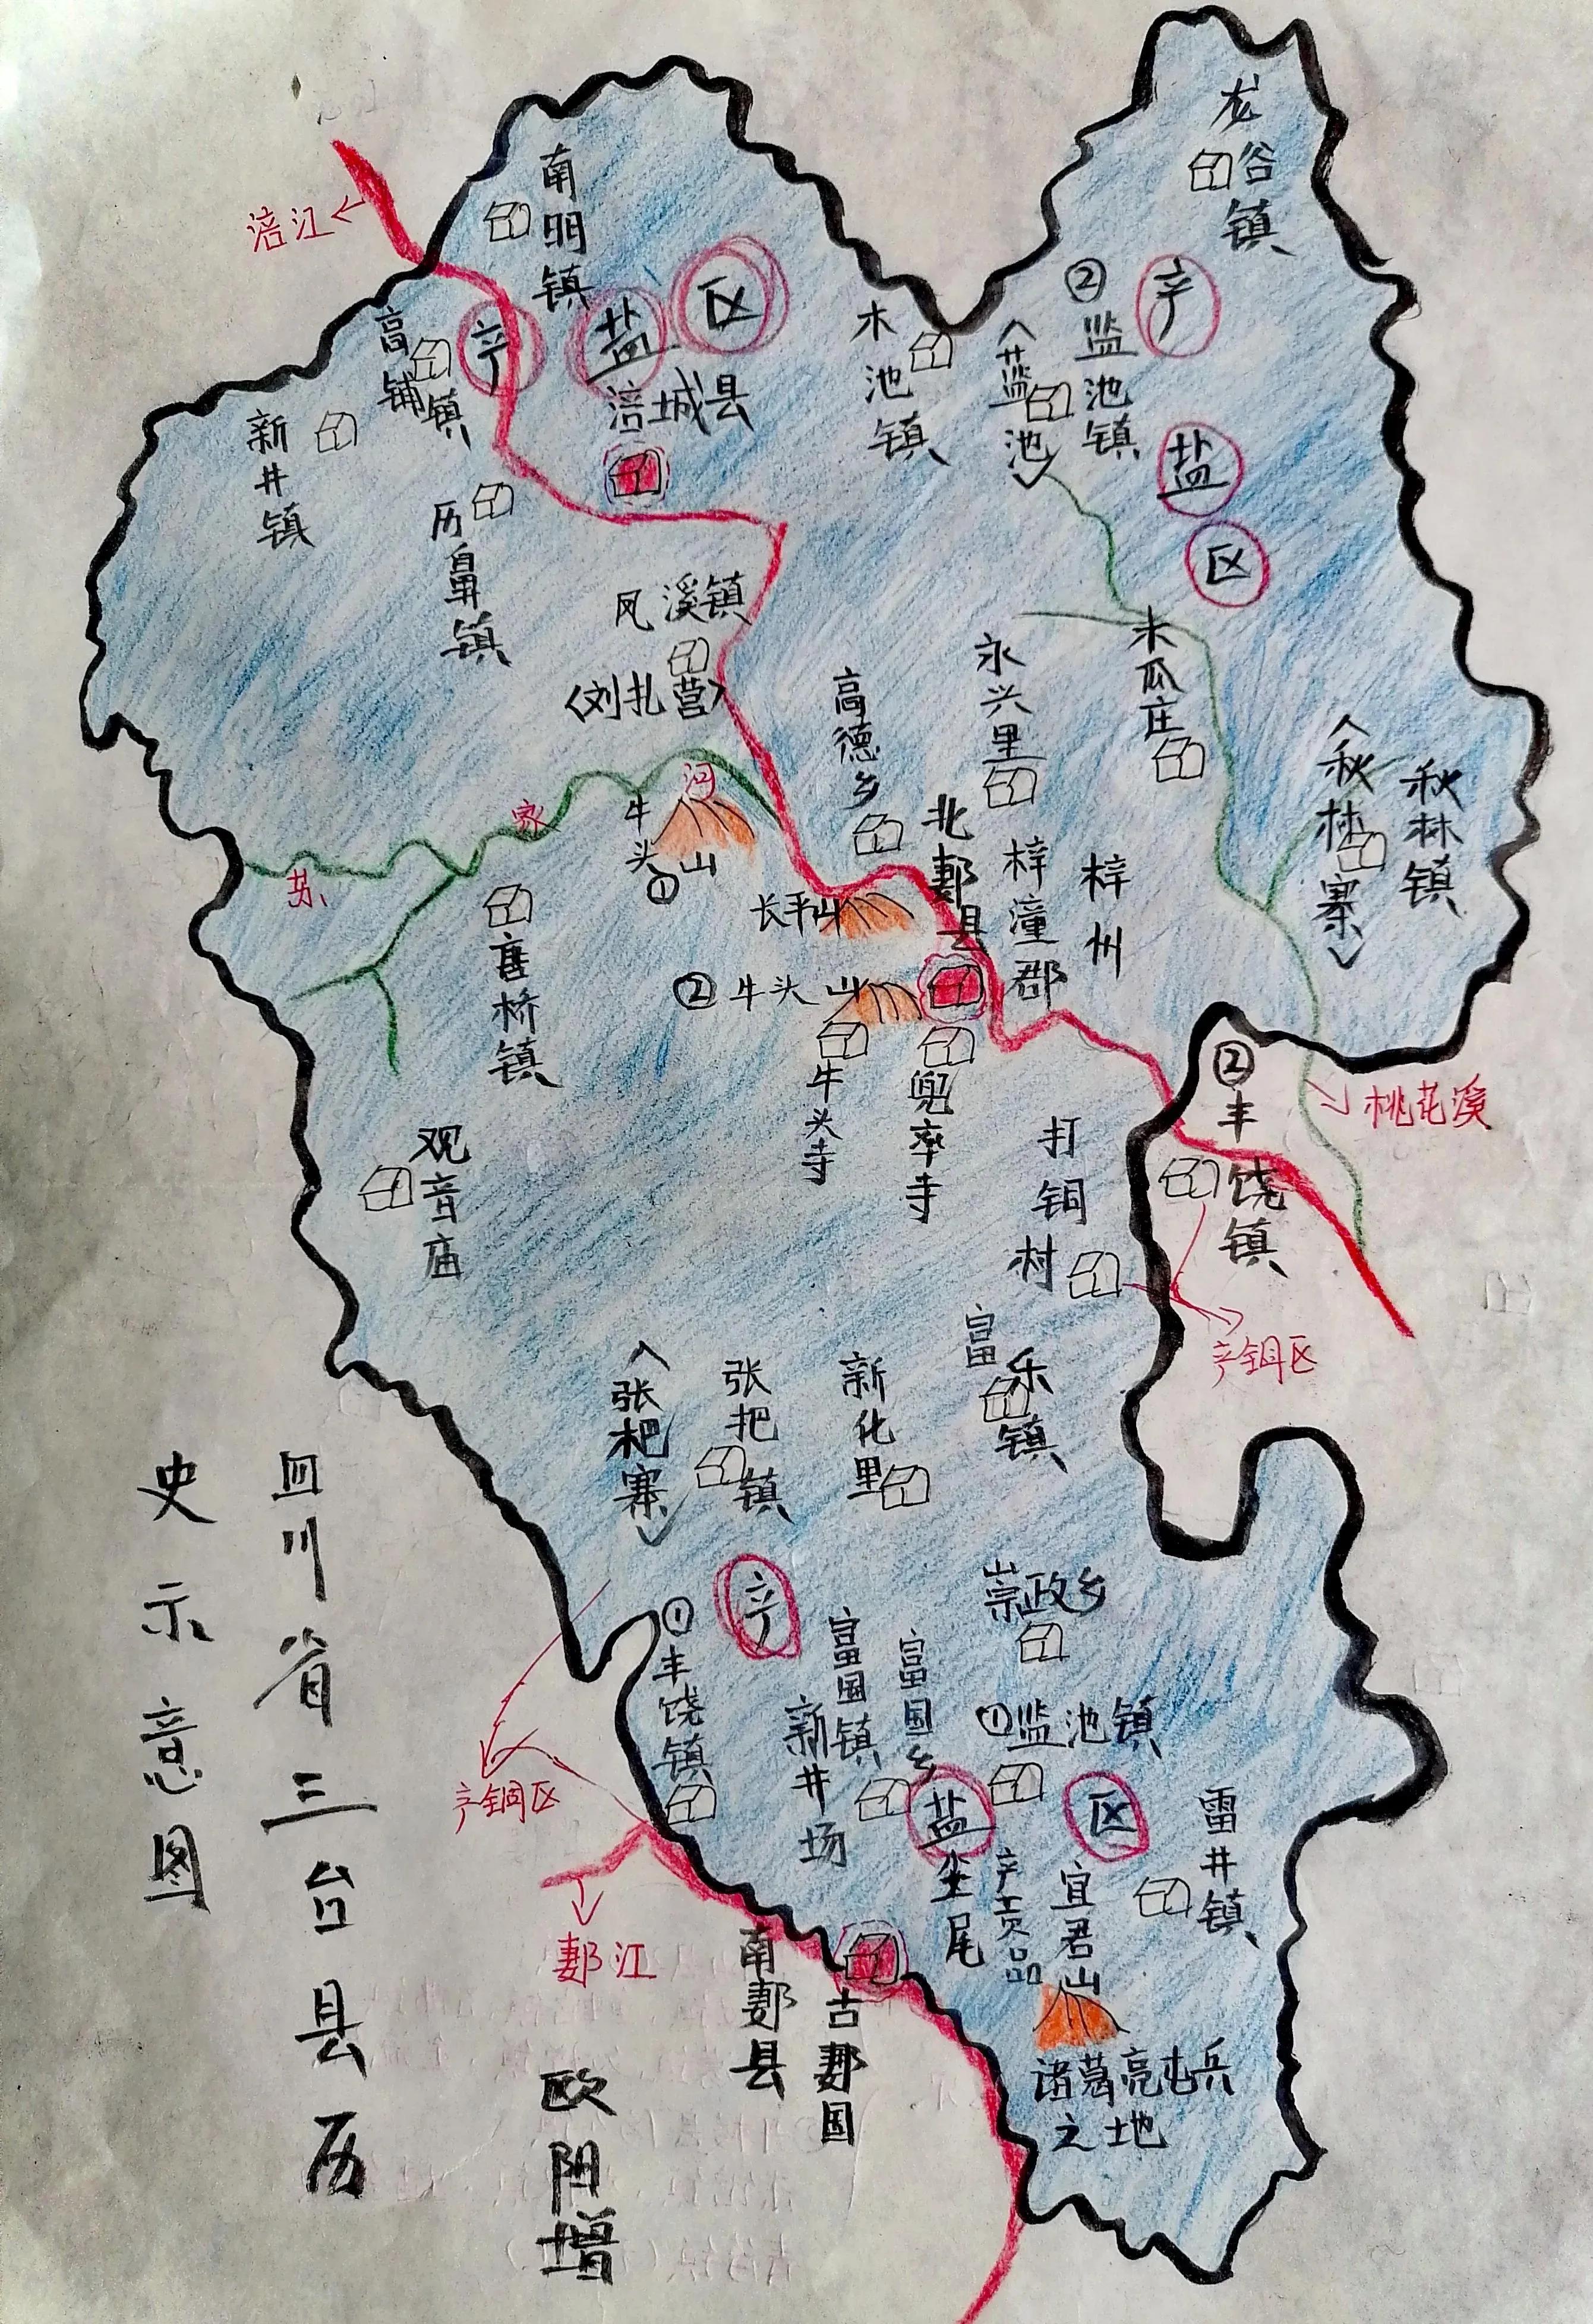 龙谷镇
南明镇
涪江
产盐区
高铺镇
涪城县
新井镇
历鼻镇
木池镇
②监池镇
〈蓝池〉
产盐区
凤溪镇
〈刘扎营〉
高德乡
永兴里
木瓜庄
〈秋林寨〉
秋林镇
苏家河
牛头山①
长平山
②牛头山
北郪县
梓潼郡
梓州
唐桥镇
牛头寺
兜率寺
②丰饶镇
桃花溪
观音庙
打铜村
产铜区
富乐镇
〈张杷寨〉
张把镇
新化里
产盐区
崇政乡
①丰饶镇
富国镇
富国乡
新井场
①监池镇
产铜区
雷井镇
尘尾
产贡品
宜君山
诸葛亮屯兵之地
郪江
南郪县
古郪国
四川省三台县历
史示意图
欧阳增